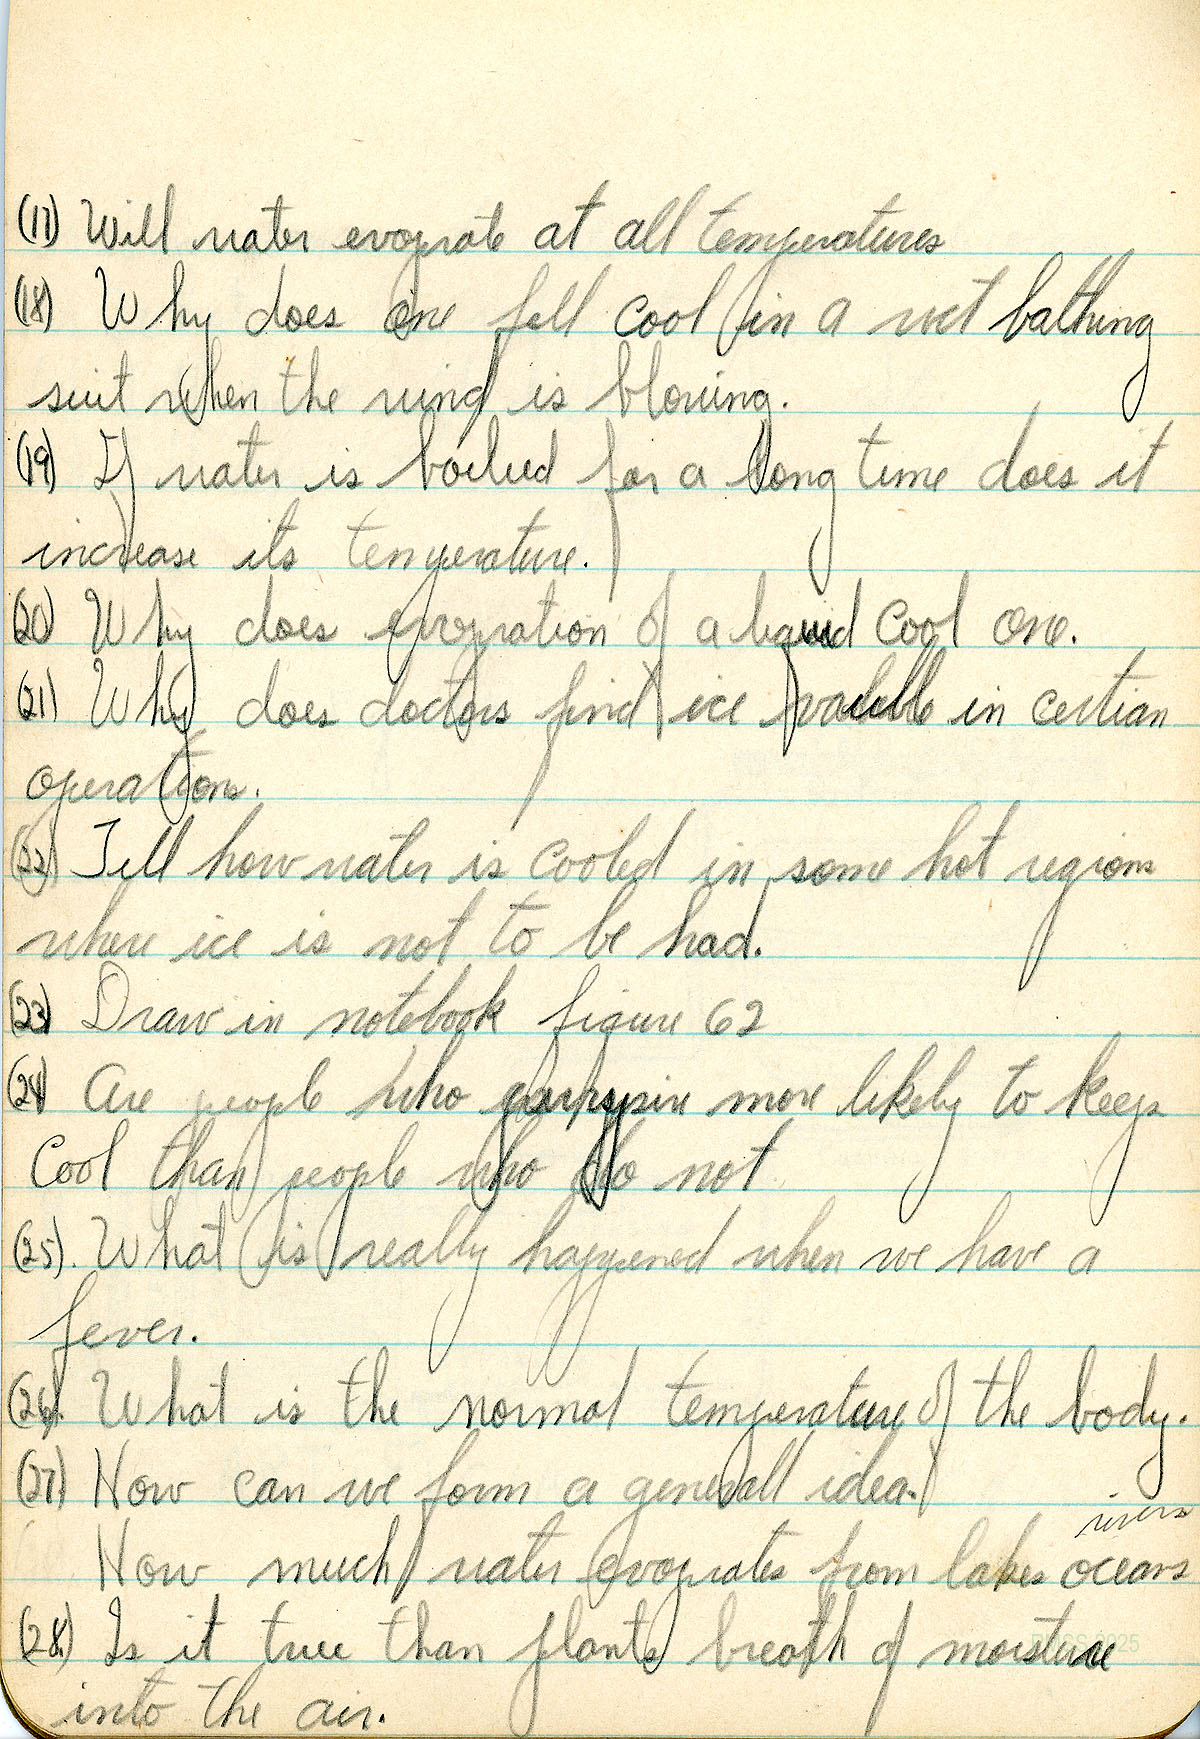 (17) Will water evoprate at all temperatures
(18) Why does one fell cool in a wet bathing
suit when the wind is blowing.
(19) If water is boiled for a long time does it
increase its temperature.
(20) Why does evopration of a liquid cool one.
(21) Why does doctors find ice valuble in certian
operations.
(22) Tell how water is cooled in some hot regions
where ice is not to be had.
(23) Draw in notebook figure 62
(24) Are people who more likely to keep
cool than people who do not
(25). What is really happened when we have a
fever.
(26). What is the normal temperature of the body.
(27) How can we form a generall idea.
rivers
How much water evoprates from lakes oceans
(28.) Is it true than plants breath of moisture
into the air.